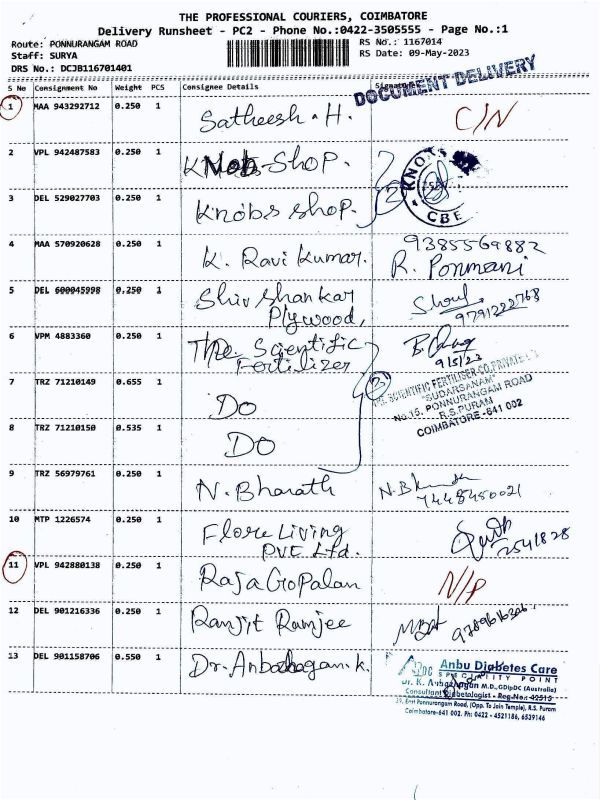 THE PROFESSIONAL COURIERS, COIMBATORE
Delivery Runsheet - PC2 - Phone No.:0422-3505555 - Page No.:1
Route: PONNURANGAM ROAD
RS No.: 1167014
Staff: SURYA
RS Date: 09-May-2023
DRS No.: DCJB116701401
S No Consignment No Weight PCS Consignee Details Signature
DOCUMENT DELIVERY
1 MAA 943292712 0.250 1 Satheesh . H. C/N
2 VPL 942487583 0.250 1 Knobs-Shop.
3 DEL 529027703 0.250 1 Knobs shop. 2
KNO
CBE
4 MAA 570920628 0.250 1 K. Ravi Kumar. 9385569882
R. Ponmani
5 DEL 600045998 0.250 1 Shiv Shankar
Plywood, 9791222768
6 VPM 4883360 0.250 1 The Scientific
Fertilizer 9/5/23
3
THE SCIENTIFIC FERTILISER CO. PRIVATE
"SUDARSANAM"
No.15, PONNURANGAM ROAD
R.S.PURAM
COIMBATORE-641 002
7 TRZ 71210149 0.655 1 Do
8 TRZ 71210150 0.535 1 Do
9 TRZ 56979761 0.250 1 N. Bharath 7448450021
10 MTP 1226574 0.250 1 Flore Living
Pvt Ltd. 2541828
11 VPL 942880138 0.250 1 RajaGopalan N/P
12 DEL 901216336 0.250 1 Ranjit Ramjee
13 DEL 901158706 0.550 1 Dr. Anbazhagan.k.
Anbu Diabetes Care
SPECIALITY POINT
Dr. K. Anbazhagan M.D.,GDipDC (Australia)
Consultant Diabetologist - Reg.No.: 42515
39, East Ponnurangam Road, (Opp. To Jain Temple), R.S. Puram
Coimbatore-641 002. Ph: 0422 - 4521186, 6539146